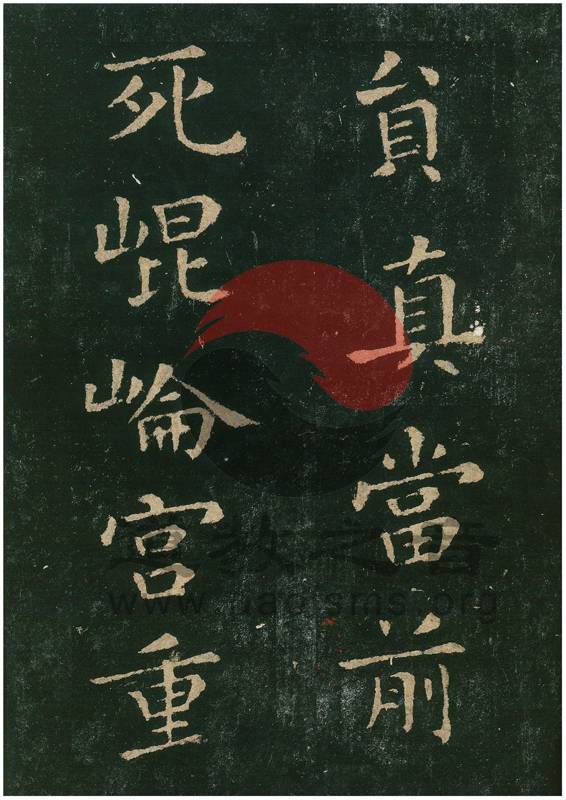 貟真當前
死崐崘宫重
道教之音
www.daoisms.org